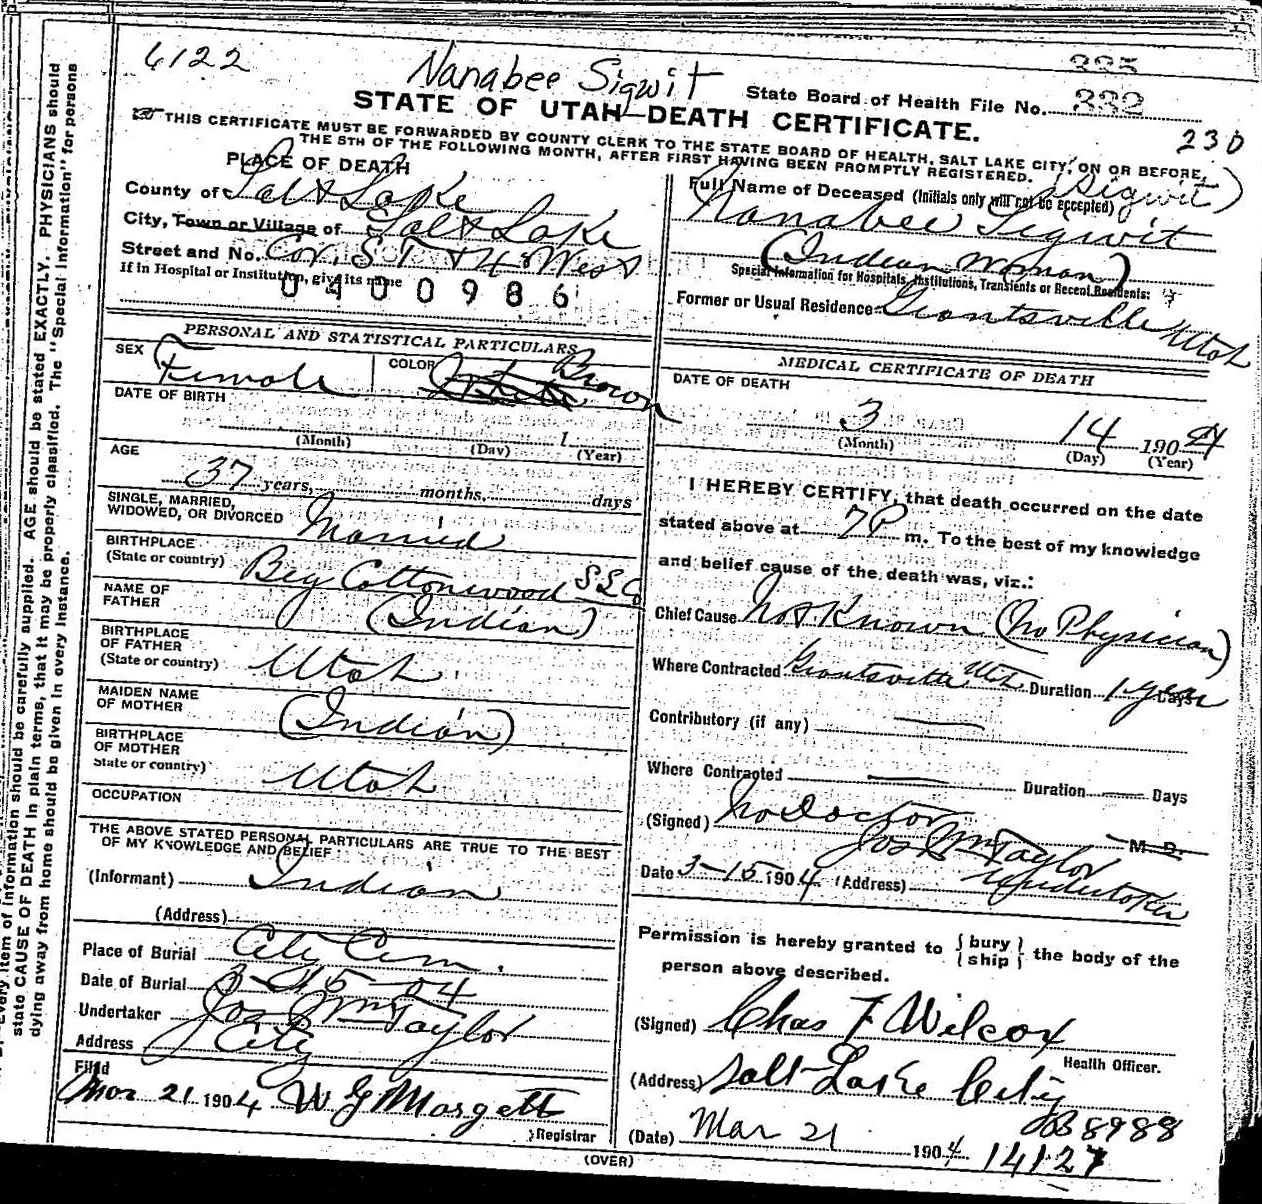 6122
Nanabee Sigwit
335
State Board of Health File No. 332
STATE OF UTAH—DEATH CERTIFICATE.
230
THIS CERTIFICATE MUST BE FORWARDED BY COUNTY CLERK TO THE STATE BOARD OF HEALTH, SALT LAKE CITY, ON OR BEFORE,
THE 5TH OF THE FOLLOWING MONTH, AFTER FIRST HAVING BEEN PROMPTLY REGISTERED.
PLACE OF DEATH
County of Salt Lake
City, Town or Village of Salt Lake
Street and No. Cor. S.T. & 4th West
If in Hospital or Institution, give its name
0400986
Full Name of Deceased (Initials only will not be accepted) (Sigwit)
Nanabee Sigwit
(Indian Woman)
Special Information for Hospitals, Institutions, Transients or Recent Residents:
Former or Usual Residence Grantsville Utah
PERSONAL AND STATISTICAL PARTICULARS
SEX Female
COLOR White Brown
DATE OF BIRTH
1
(Month) (Day) (Year)
AGE
37 years, months, days
SINGLE, MARRIED,
WIDOWED, OR DIVORCED Married
BIRTHPLACE
(State or country) Big Cottonwood S L Co
NAME OF
FATHER (Indian)
BIRTHPLACE
OF FATHER
(State or country) Utah
MAIDEN NAME
OF MOTHER (Indian)
BIRTHPLACE
OF MOTHER
State or country) Utah
OCCUPATION
THE ABOVE STATED PERSONAL PARTICULARS ARE TRUE TO THE BEST
OF MY KNOWLEDGE AND BELIEF
(Informant) Indian
(Address)
Place of Burial City Cem.
Date of Burial 3-15-04
Undertaker Jos Wm Taylor
Address City
Filed
Mar 21 1904 W G Margett
Registrar
MEDICAL CERTIFICATE OF DEATH
DATE OF DEATH
3 14 1904
(Month) (Day) (Year)
I HEREBY CERTIFY, that death occurred on the date
stated above at 7P m. To the best of my knowledge
and belief cause of the death was, viz.:
Chief Cause Not Known (No Physician)
Where Contracted Grantsville Utah Duration 1 year Days
Contributory (if any) —
Where Contracted — Duration — Days
(Signed) No Doctor M. D.
Jos Wm Taylor
Date 3-15 1904 (Address) Undertaker
Permission is hereby granted to {bury
ship} the body of the
person above described.
(Signed) Chas F Wilcox
Health Officer.
(Address) Salt Lake City
B8988
(Date) Mar 21 1904 14127
(OVER)
Every item of information should be carefully supplied. AGE should be stated EXACTLY. PHYSICIANS should
state CAUSE OF DEATH in plain terms, that it may be properly classified. The "Special Information" for persons
dying away from home should be given in every instance.